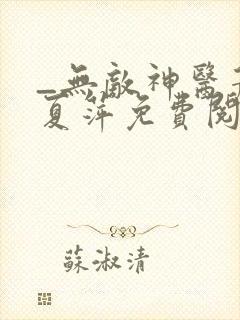 _無敵神醫
夏萍免費閱
蘇淑清